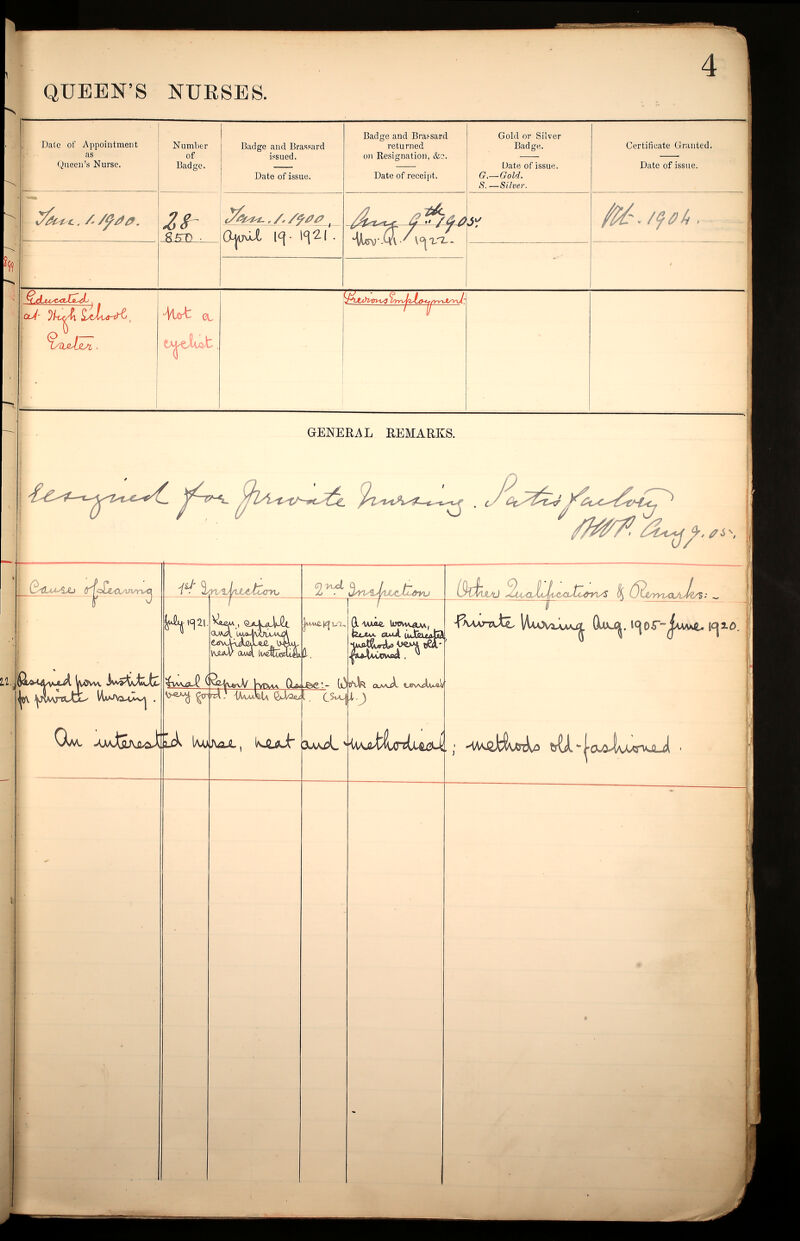 4
QUEEN'S NURSES.
Date of Appointment
as
Queen's Nurse.
Number
of
Badge.
Badge and Brassard
issued.
Date of issue.
Badge and Brassard
returned
on Resignation, &c.
Date of receipt.
Gold or Silver
Badge.
Date of issue.
G.—Gold.
S.—Silver.
Certificate Granted.
Date of issue.
Jan. 1. 1900.
28
Jan. 1. 1900,
Aug 9th 1905.
Oct. 1904.
850.
April 19. 1921.
Nov. 1922.
Educated,
at High School,
Exeter.
Not a
cyclist.
Previous Employment
GENERAL REMARKS.
Resigned for private nursing. Satisfactory
Aug 9. 05.
Cause of Leaving
1st Inspection
2nd Inspection
Other Qualifications & Remarks:-
July 1921.
Keen, capable
and inspiring
confidence, very
neat and methodical.
June 1922.
A nice woman,
keen and interested,
methods very old-
fashioned.
Private Nursing Aug. 1905-June. 1920.
22.
Resigned from Institute
for private Nursing.
Final Report from :- Work and conduct
very good. Much liked. (Supt.)
An interested nurse, neat and methodical; methods old-fashioned.